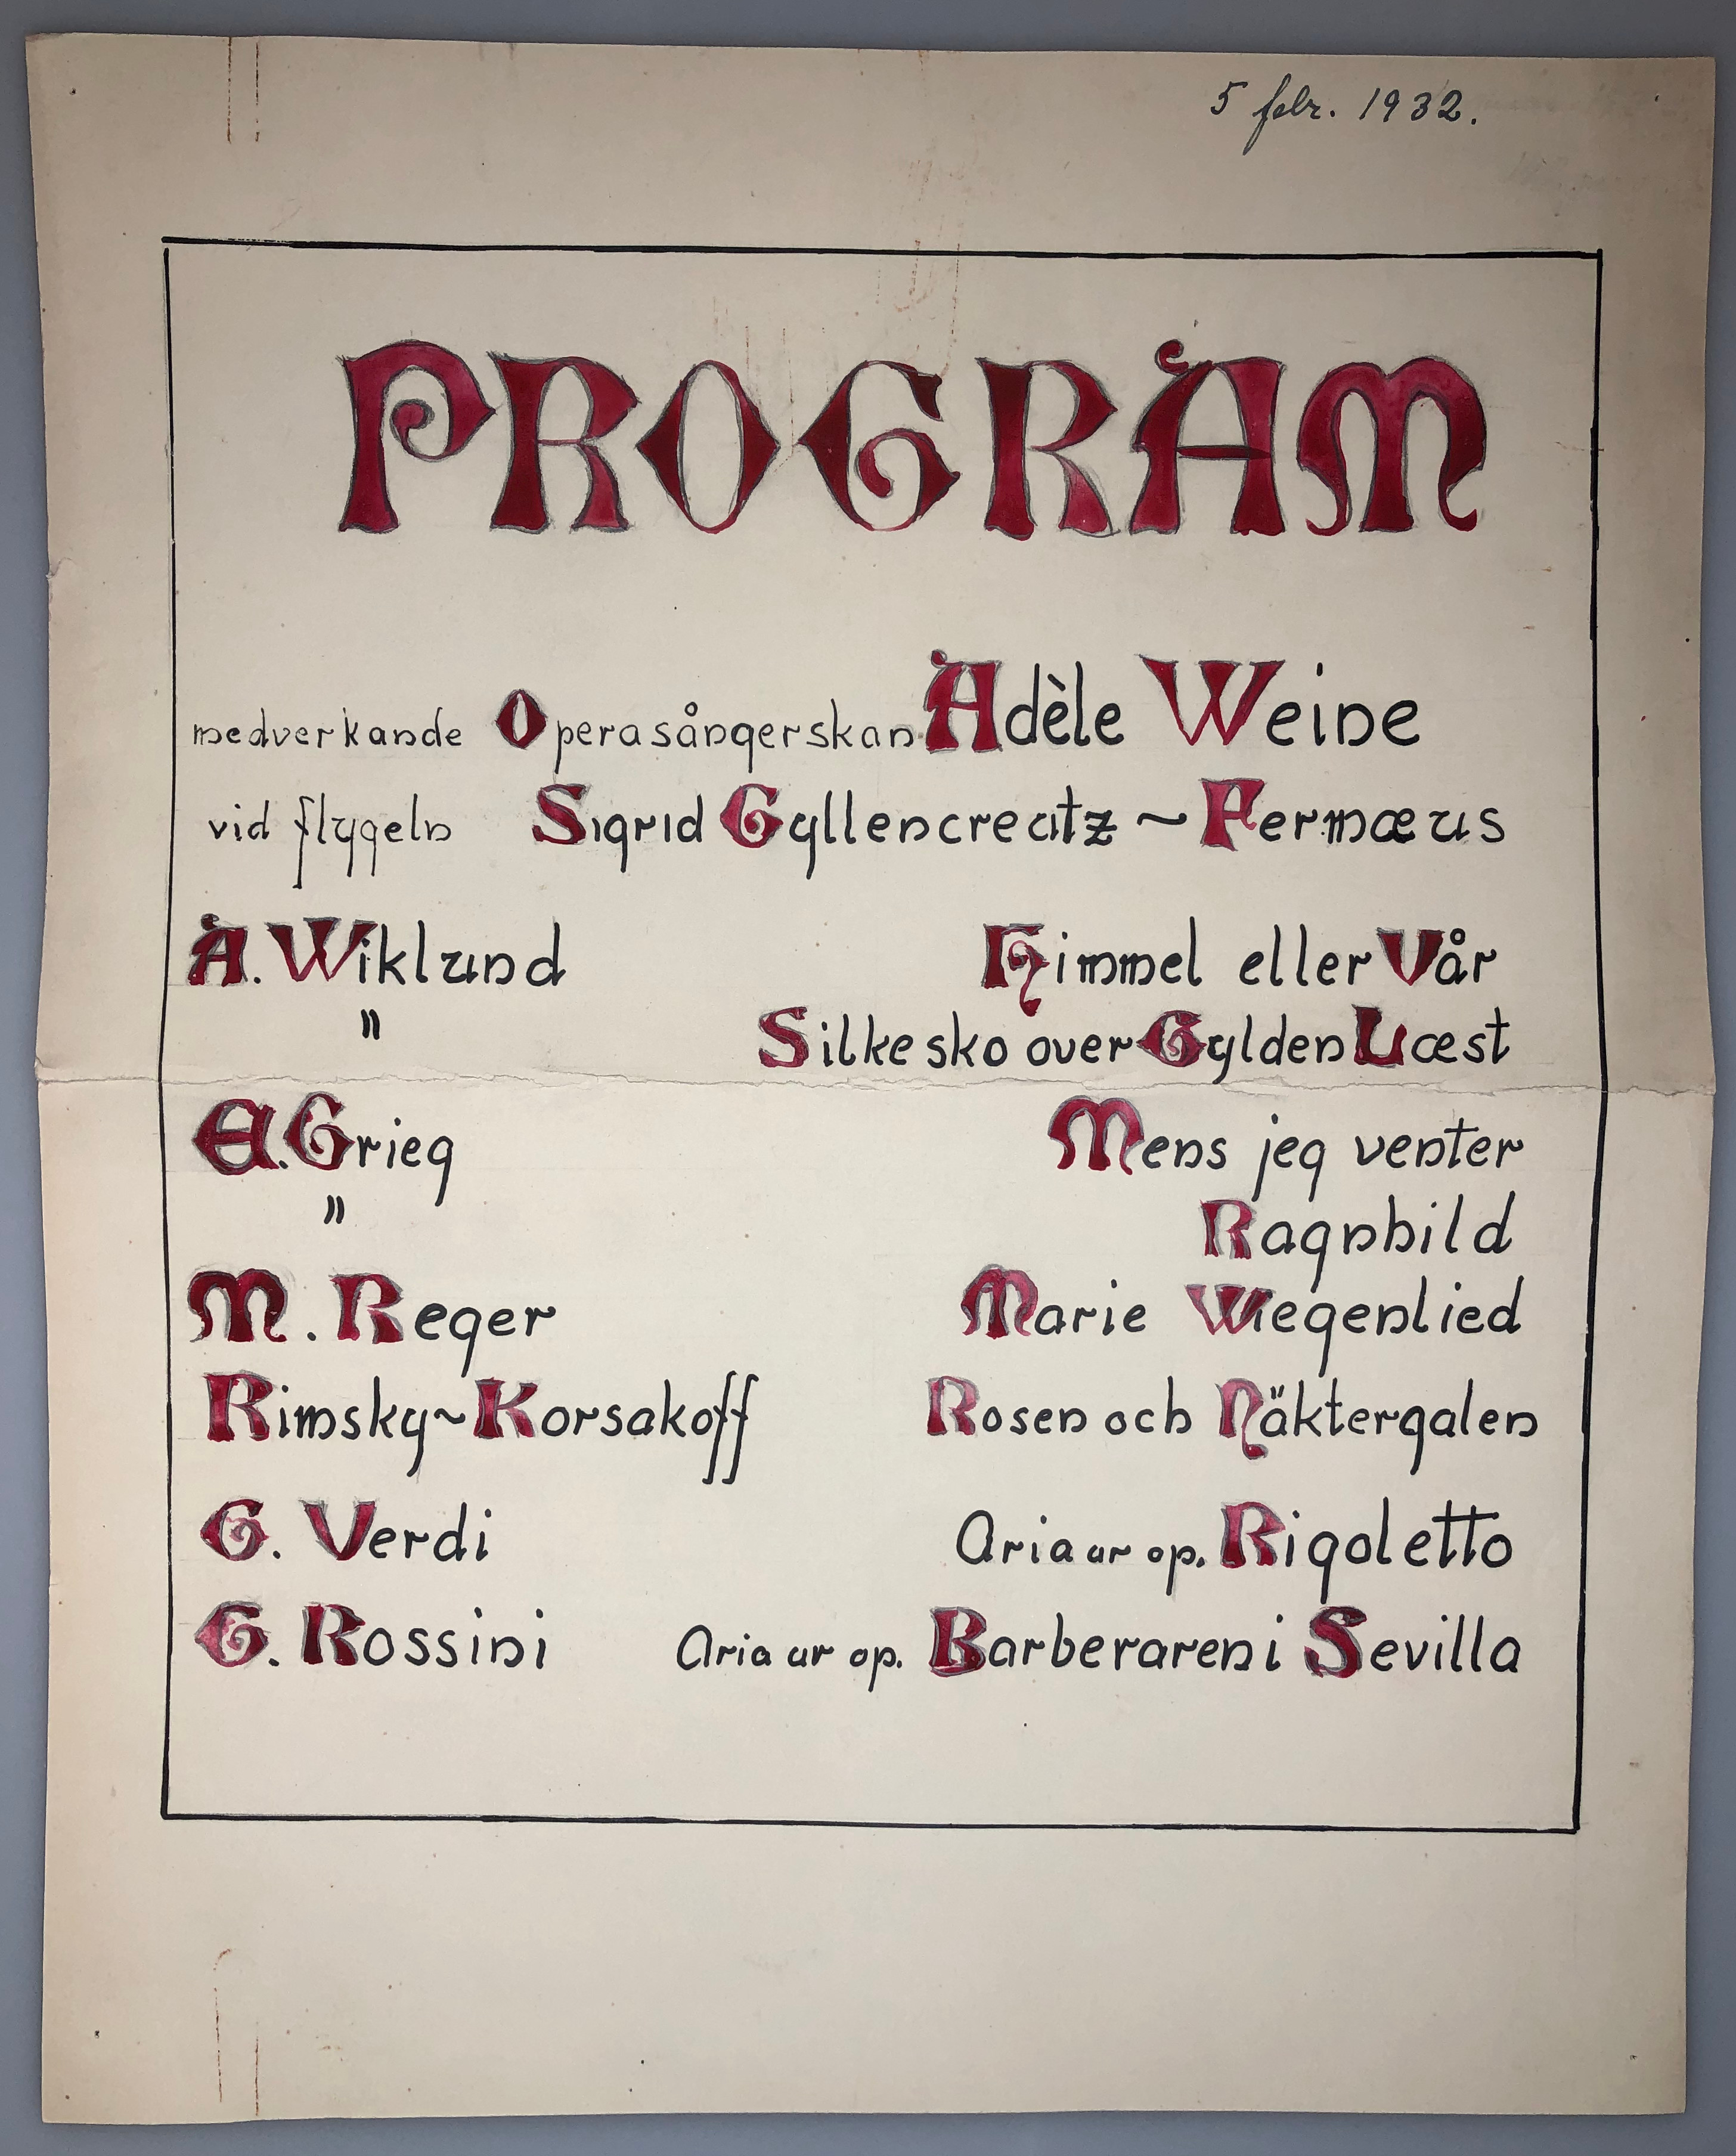 5 febr. 1932.
PROGRAM
medverkande Operasångerskan Adèle Weine
vid flygeln Sigrid Gyllencreutz ~ Fermæus
A. Wiklund Himmel eller Vår
" Silkesko over Gylden Læst
E. Grieg Mens jeg venter
" Ragnhild
M. Reger Marie Wiegenlied
Rimsky~Korsakoff Rosen och Näktergalen
G. Verdi Aria ur op. Rigoletto
G. Rossini Aria ur op. Barberaren i Sevilla